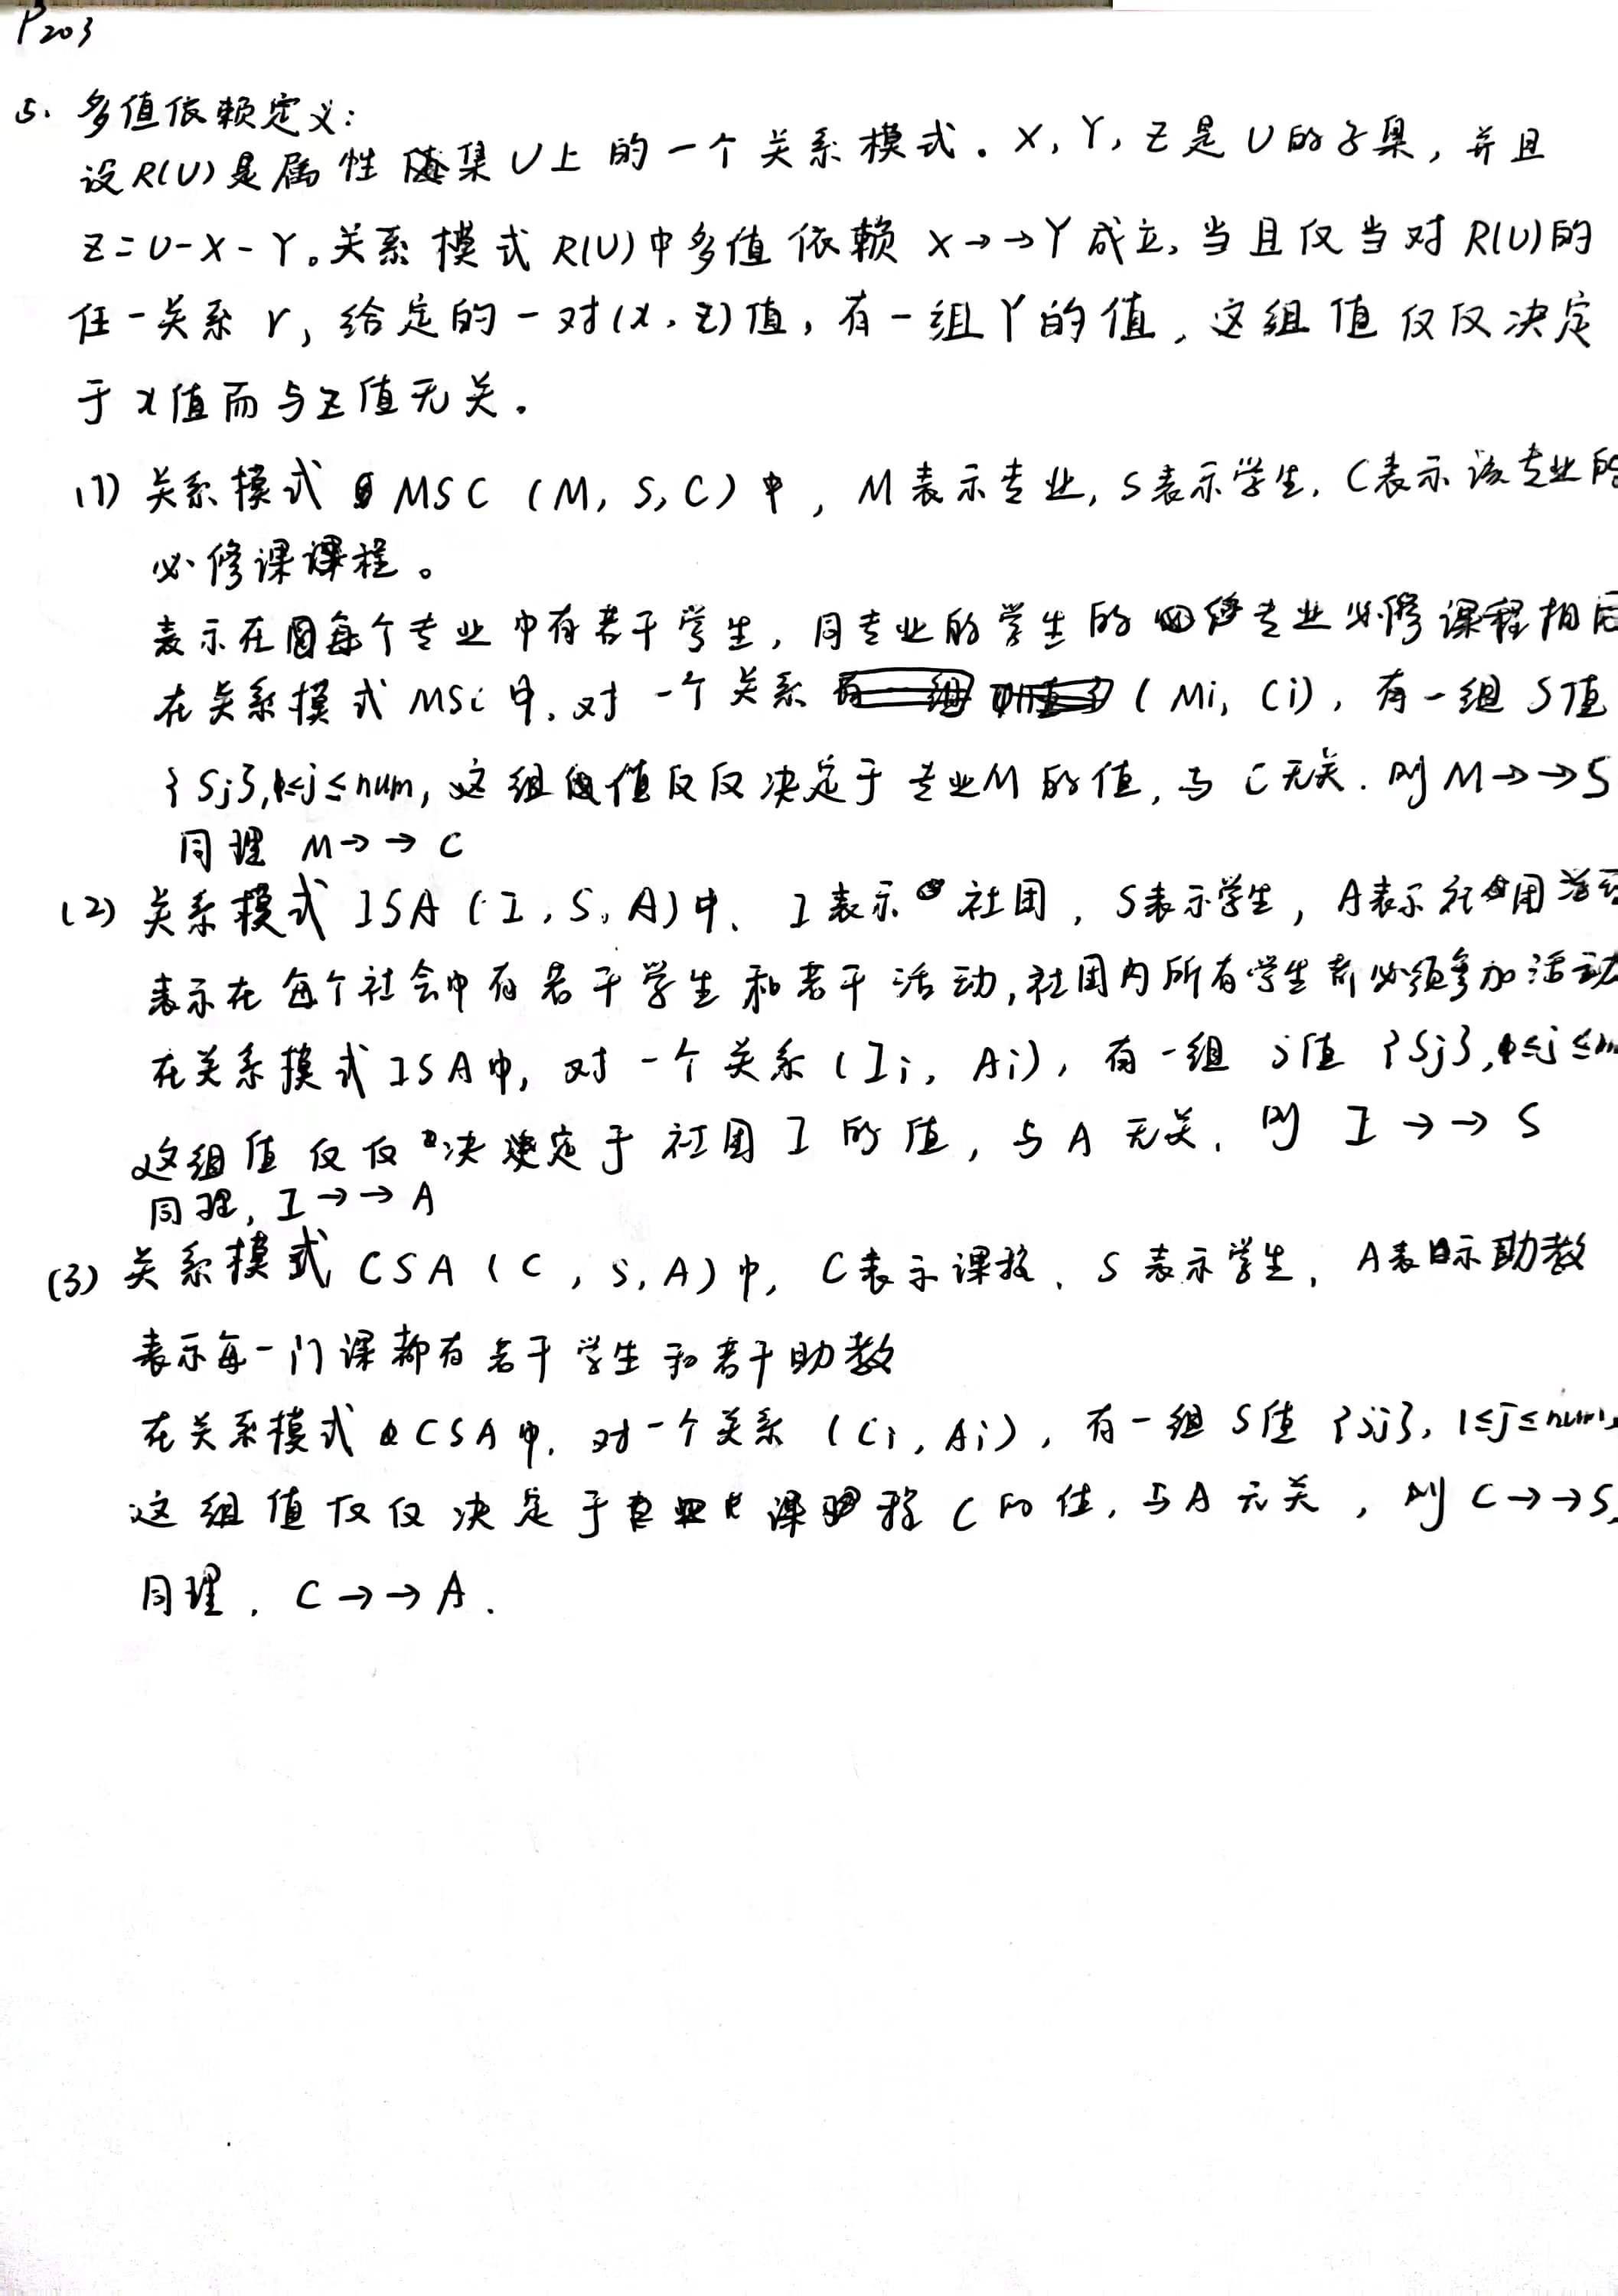 P203
5. 多值依赖定义:
设R(U)是属性集U上的一个关系模式。X,Y,Z是U的子集,并且
Z=U-X-Y。关系模式R(U)中多值依赖 X→→Y成立,当且仅当对R(U)的
任一关系r,给定的一对(x,z)值,有一组Y的值,这组值仅仅决定
于x值而与z值无关。
(1) 关系模式MSC(M,S,C)中,M表示专业,S表示学生,C表示该专业的
必修课课程。
表示在每个专业中有若干学生,同专业的学生的专业必修课程相同
在关系模式MSC中,对一个关系(Mi,Ci),有一组S值
{Sj},1≤j≤num,这组值仅仅决定于专业M的值,与C无关.则M→→S
同理 M→→C
(2) 关系模式ISA(I,S,A)中、I表示社团,S表示学生,A表示社团活动
表示在每个社会中有若干学生和若干活动,社团内所有学生都必须参加活动
在关系模式ISA中,对一个关系(Ii,Ai),有一组S值{Sj},1≤j≤
这组值仅仅决定于社团I的值,与A无关.则 I→→S
同理,I→→A
(3) 关系模式CSA(C,S,A)中,C表示课程、S表示学生,A表示助教
表示每一门课都有若干学生和若干助教
在关系模式CSA中.对一个关系(Ci,Ai),有一组S值{Sj},1≤j≤num,
这组值仅仅决定于课程C的值,与A无关,则C→→S,
同理.C→→A.